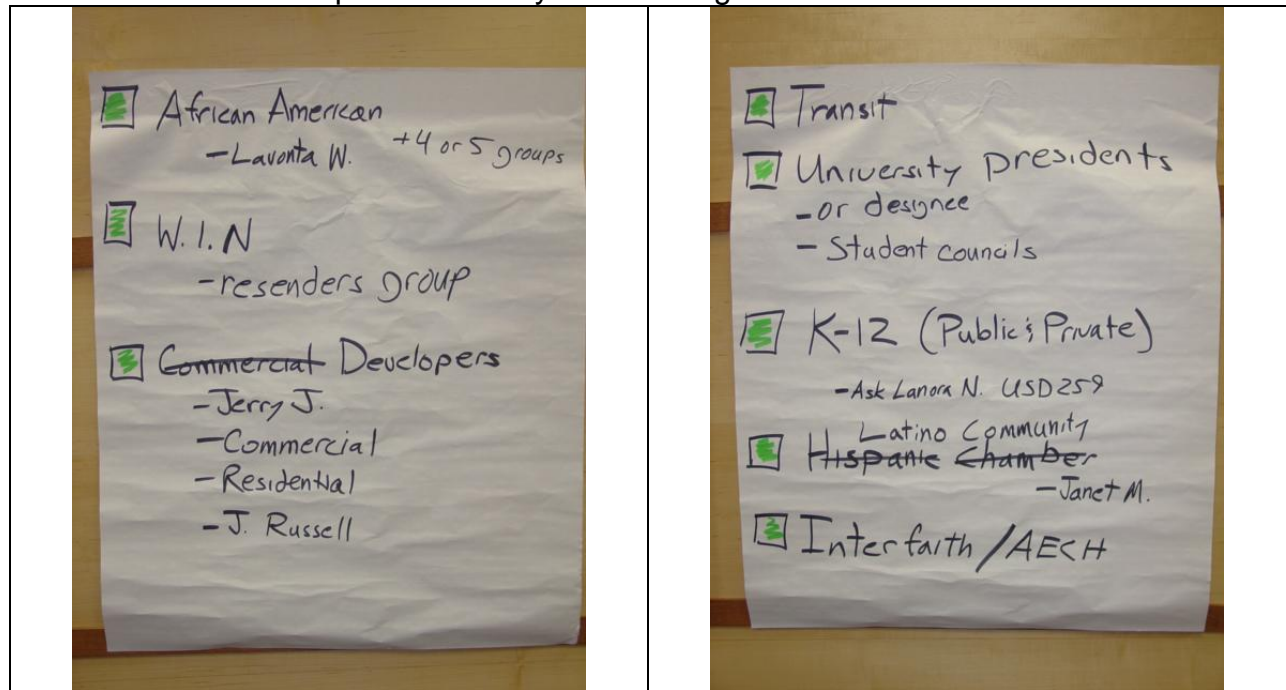 African American
- Lavonta W. +4 or 5 groups
W.I.N
- resenders group
Commercial Developers
- Jerry J.
- Commercial
- Residential
- J. Russell
Transit
University presidents
- or designee
- Student councils
K-12 (Public & Private)
- Ask Lanora N. USD259
Latino Community
Hispanic Chamber
- Janet M.
Interfaith / AECH